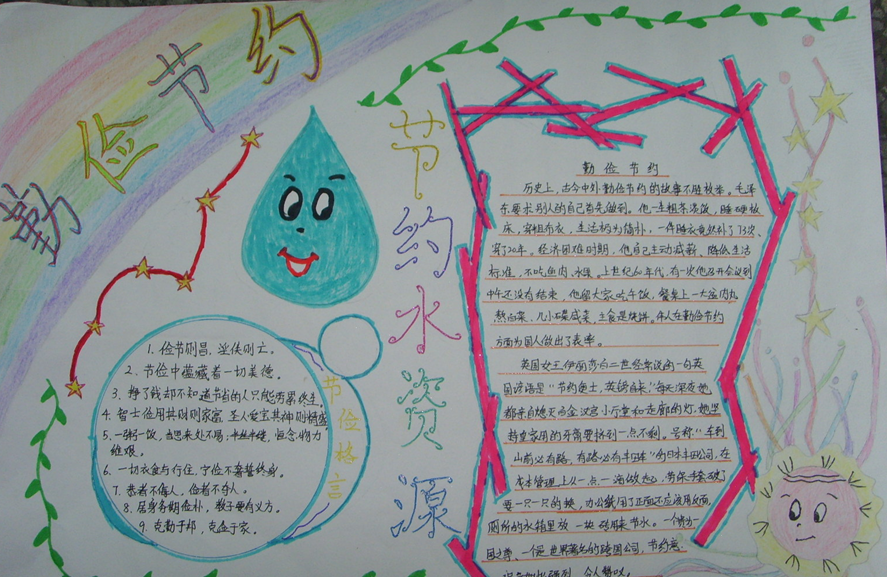 勤俭节约
节约水资源
节俭格言
1. 俭节则昌，淫佚则亡。
2. 节俭中蕴藏着一切美德。
3. 挣了钱却不知道节省的人只能劳累终生
4. 智士俭用其财则家富 圣人爱宝其神则精盛
5. 一粥一饭，当思来处不易；半丝半缕，恒念物力
维艰。
6. 一切衣食与行住，宁俭不奢誓终身。
7. 恭者不侮人，俭者不夺人。
8. 居身务期俭朴，教子要有义方。
9. 克勤于邦，克俭于家。
勤俭节约
历史上，古今中外勤俭节约的故事不胜枚举。毛泽
东要求别人的自己首先做到。他一生粗茶淡饭，睡硬板
床，穿粗布衣，生活极为简朴，一件睡衣竟然补了73次、
穿了20年。经济困难时期，他自己主动减薪、降低生活
标准，不吃鱼肉、水果。上世纪60年代，有一次他召开会议到
中午还没有结束，他留大家吃午饭，餐桌上一大盆肉丸
熬白菜、几小碟咸菜，主食是烧饼。
方面为国人做出了表率。
英国女王伊丽莎白二世经常说的一句英
国谚语是“节约便士，英镑自来”每天深夜她
都亲自熄灭白金汉宫小厅堂和走廊的灯，她坚
持皇家用的牙膏要挤到一点不剩。号称“车到
山前必有路，有路必有丰田车”的日本丰田公司，在
成本管理上从一点一滴做起，劳保手套破了
要一只一只的换，办公纸用了正面还应该用反面，
厕所的水箱里放一块砖用来节水。一个贵为一
国之尊、一个是世界著名的跨国公司，节约意